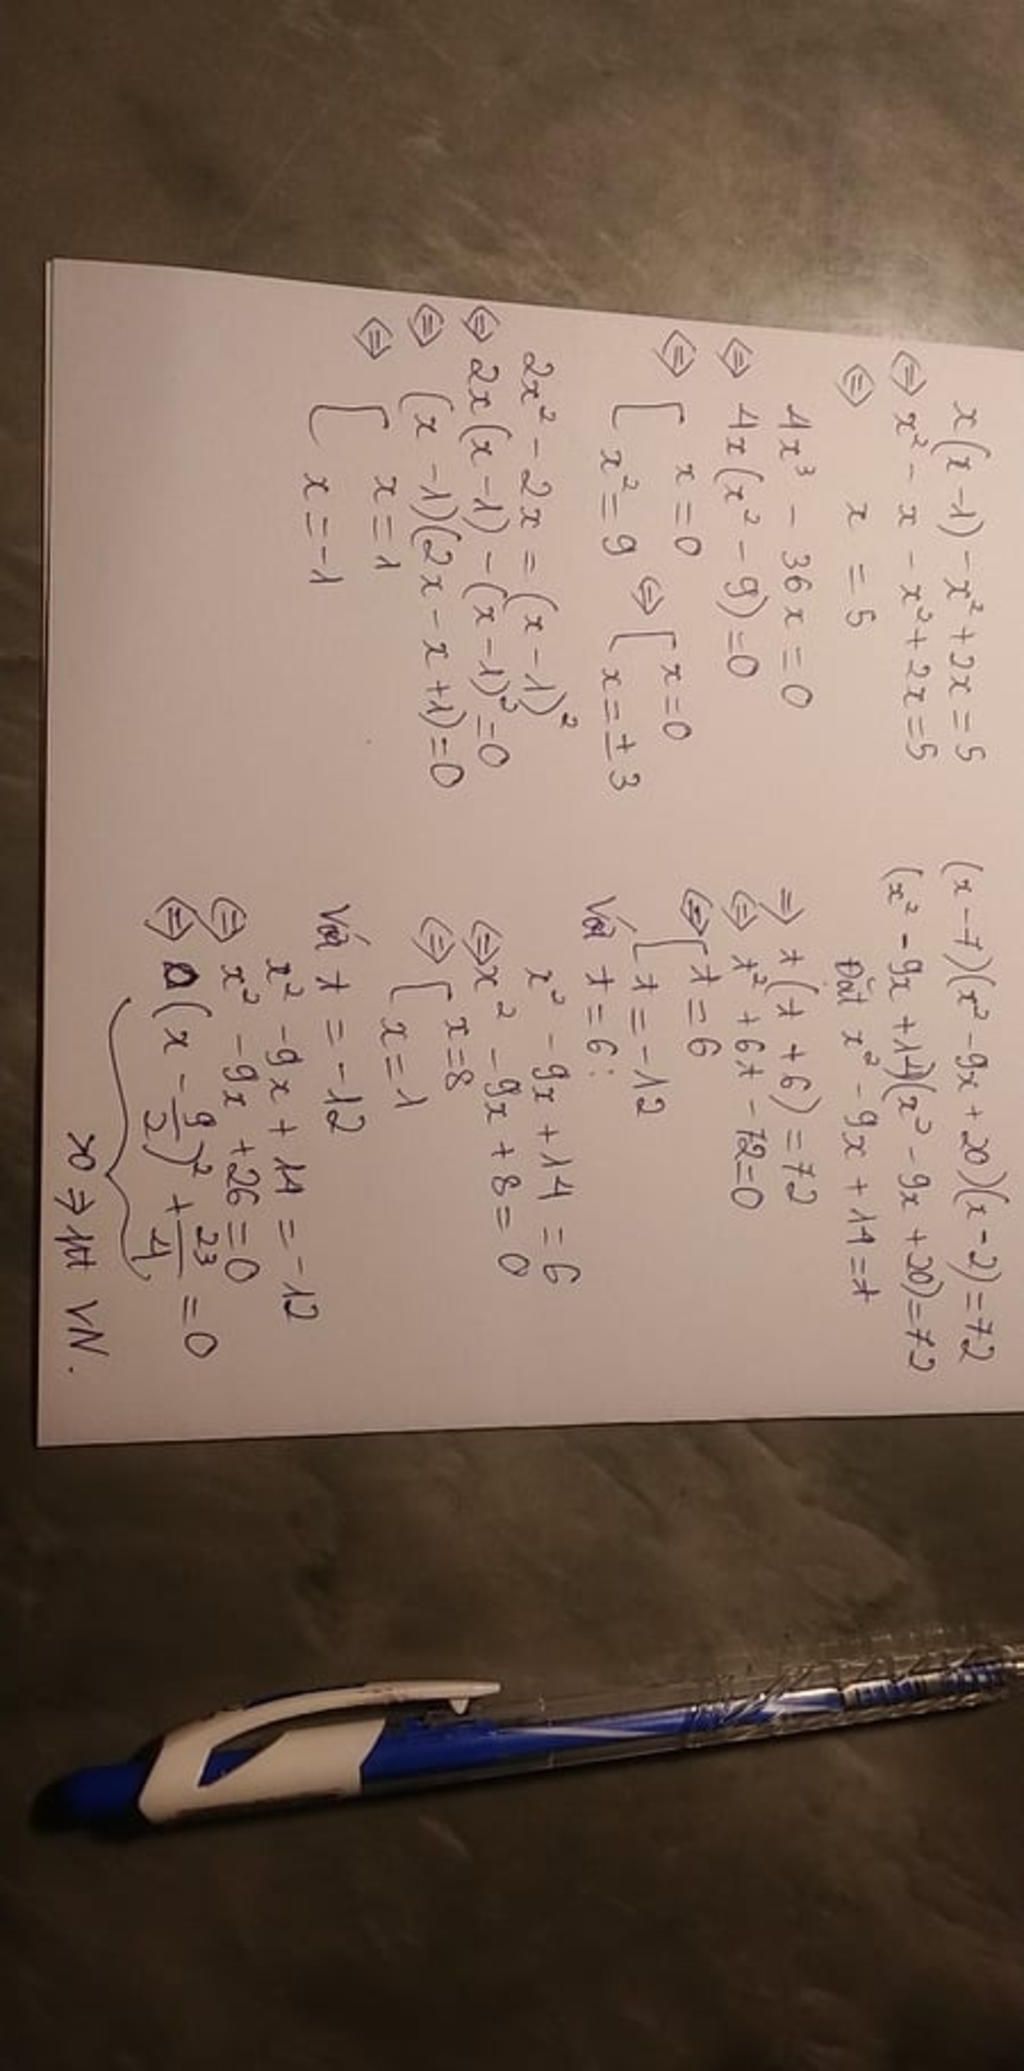 x(x-1) - x² + 2x = 5
⇔ x² - x - x² + 2x = 5
⇔ x = 5
4x³ - 36x = 0
⇔ 4x(x² - 9) = 0
⇔ [ x = 0
x² = 9 ⇔ [ x = 0
x = ± 3
2x² - 2x = (x-1)²
⇔ 2x(x-1) - (x-1)² = 0
⇔ (x-1)(2x - x + 1) = 0
⇔ [ x = 1
x = -1
(x-7)(x² - 9x + 20)(x-2) = 72
(x² - 9x + 14)(x² - 9x + 20) = 72
Đặt x² - 9x + 14 = t
⇒ t(t + 6) = 72
⇔ t² + 6t - 72 = 0
⇔ [ t = 6
t = -12
Với t = 6:
x² - 9x + 14 = 6
⇔ x² - 9x + 8 = 0
⇔ [ x = 8
x = 1
Với t = -12
x² - 9x + 14 = -12
⇔ x² - 9x + 26 = 0
⇔ (x - 9/2)² + 23/4 = 0
VN.